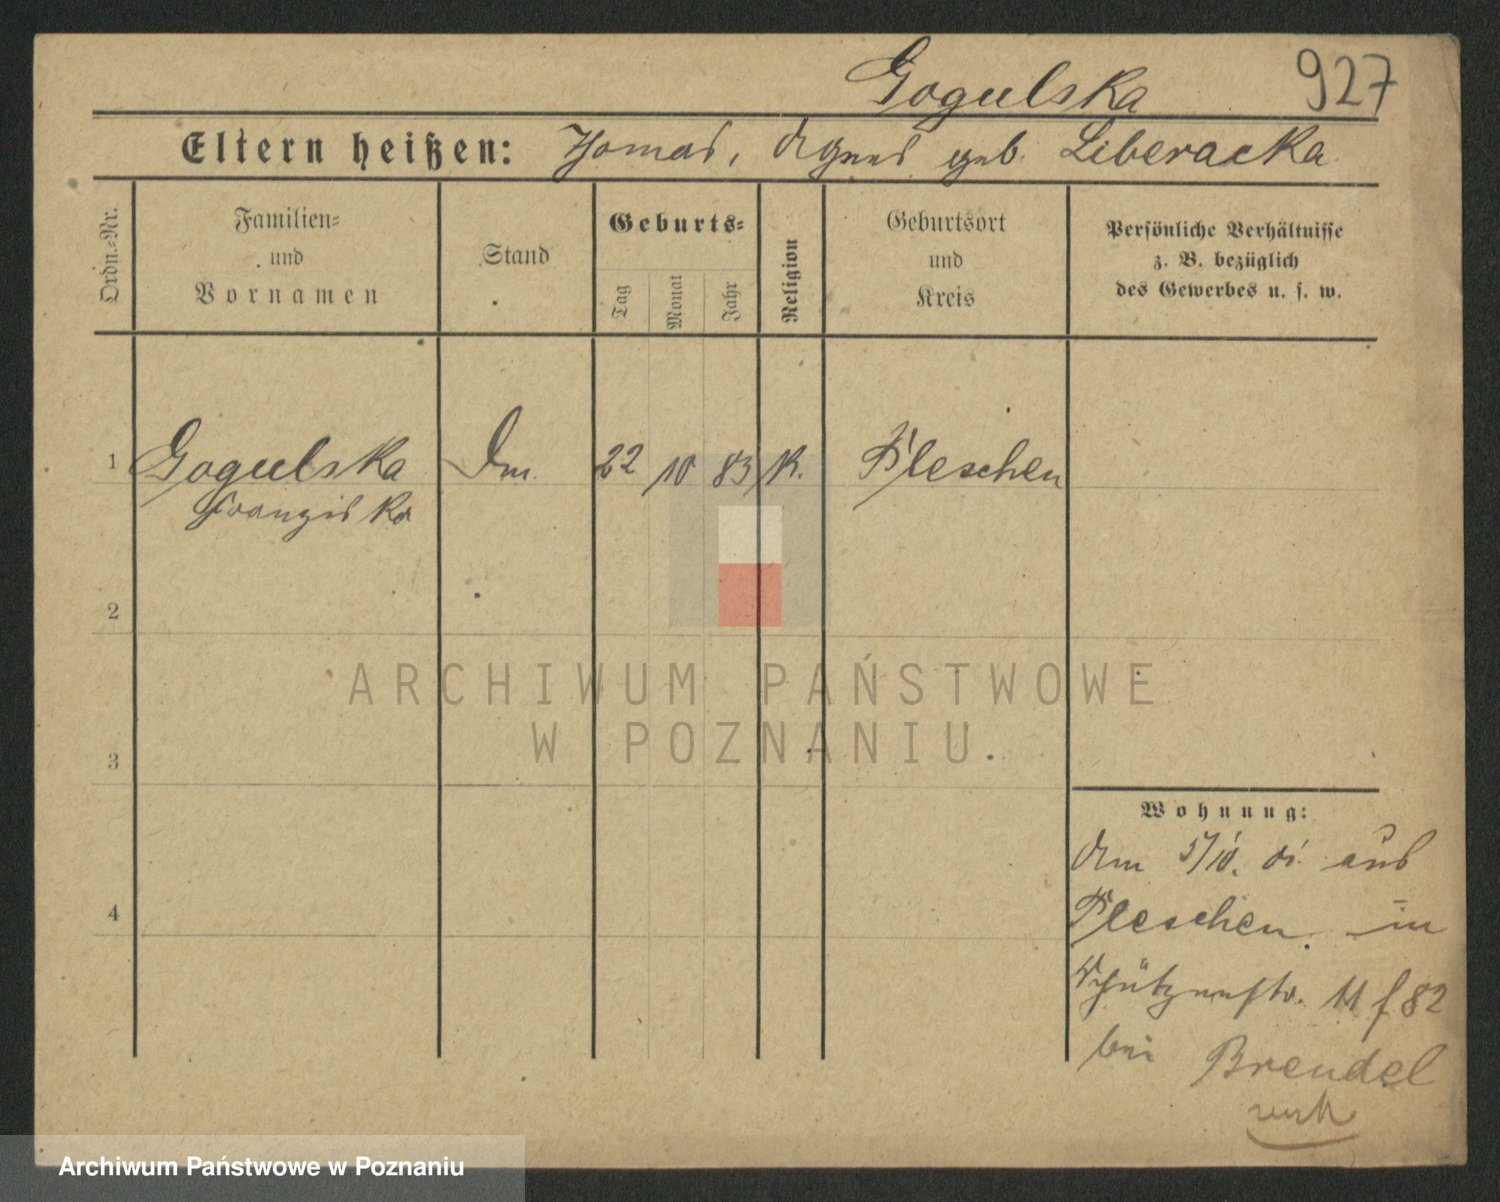 Gogulska 927
Eltern heißen: Thomas, Agnes geb. Liberacka
Ordn.=Nr.
Familien=
und
Vornamen
Stand
Geburts=
Tag
Monat
Jahr
Religion
Geburtsort
und
Kreis
Persönliche Verhältnisse
z. B. bezüglich
des Gewerbes u. s. w.
1 Gogulska 22 10 83 K. Pleschen
Franziska
2
3
4
Wohnung:
Am 5/10. 01 aus
Pleschen in
Schützenstr. 11 f 82
bei Brendel
ARCHIWUM PAŃSTWOWE
W POZNANIU
Archiwum Państwowe w Poznaniu